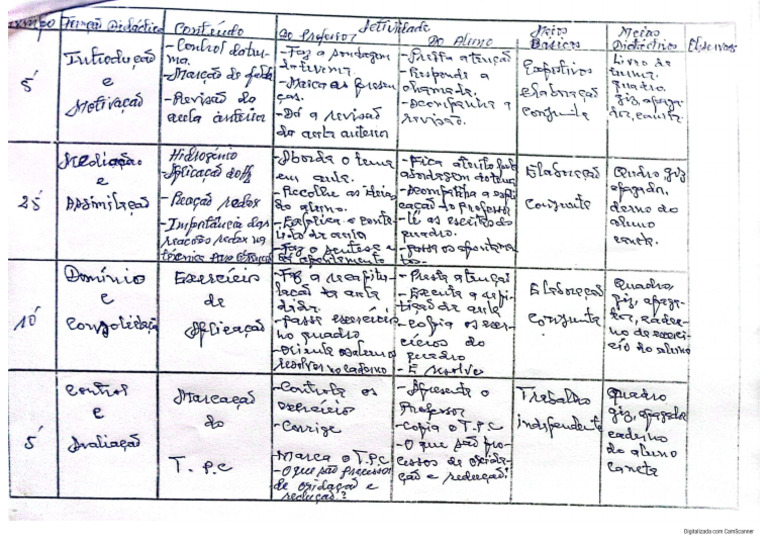 Tempo Função Didáctica Conteúdo Actividade Meios Meios Observ
Do Professor Do Aluno Básicos Didácticos
5'
Introdução
e
Motivação
- Control da tur-
ma.
- Marcação de falta
- Revisão da
aula anterior
- Faz a sondagem
- Marca as presen-
ças.
- Dá a revisão
da aula anterior
- Presta atenção
- Responde a
chamada.
- Acompanha a
revisão.
Expositivos
elaboração
conjunta
Livro de
turma.
quadro
giz, apaga-
dor, caneta.
25'
Mediação
e
Assimilação
Hidrogénio
- Aplicação do H2
- Reação redox
- Importância das
reacções redox na
técnica
- Aborda o tema
em aula.
- Recolhe as ideias
do aluno.
- Explica o conte-
údo da aula
- Faz o sentese e
- Fica atento
abordagem do tema
- Acompanha a expli
cação do professor
- Lê as escritas do
quadro.
- passa os apontamen-
tos.
Elaboração
conjunta
Quadro giz
apagador,
derno do
aluno
caneta.
10'
Domínio
e
Consolidação
Exercícios
de
Aplicação
- Faz a recapitu-
lação da aula
dada.
- Passa exercícios
no quadro
- Oriente os alunos
resolver no caderno
- Presta atenção
- Escuta a
da aula
- copia os exer-
cícios do
quadro
- E resolve
Elaboração
conjunta
Quadro,
giz, apaga-
dor, cader-
no de exercí-
cio do aluno
5'
Control
e
Avaliação
Marcação
do
T.P.C
- Controla os
exercício
- Corrige
Marca o T.P.C
- O que são processos
de oxidação e
redução?
- Apresenta o
Professor
- Copia o T.P.C
- O que são pro-
cessos de oxida-
ção e redução?
Trabalho
independente
Quadro
giz, apagador
caderno
do aluno
caneta
Digitalizada com CamScanner